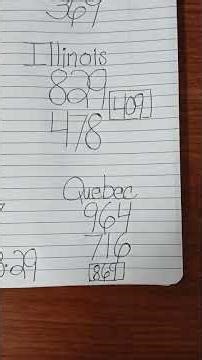 369
Illinois
829
409
478
Quebec
964
716
869
:29